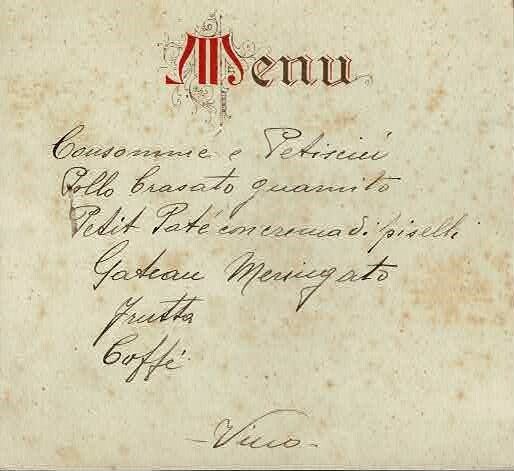 Menu
Consommé e Petisciù
Pollo Brasato guarnito
Petit Paté con crema di piselli
Gateau Meringato
Frutta
Caffé
- Vino -